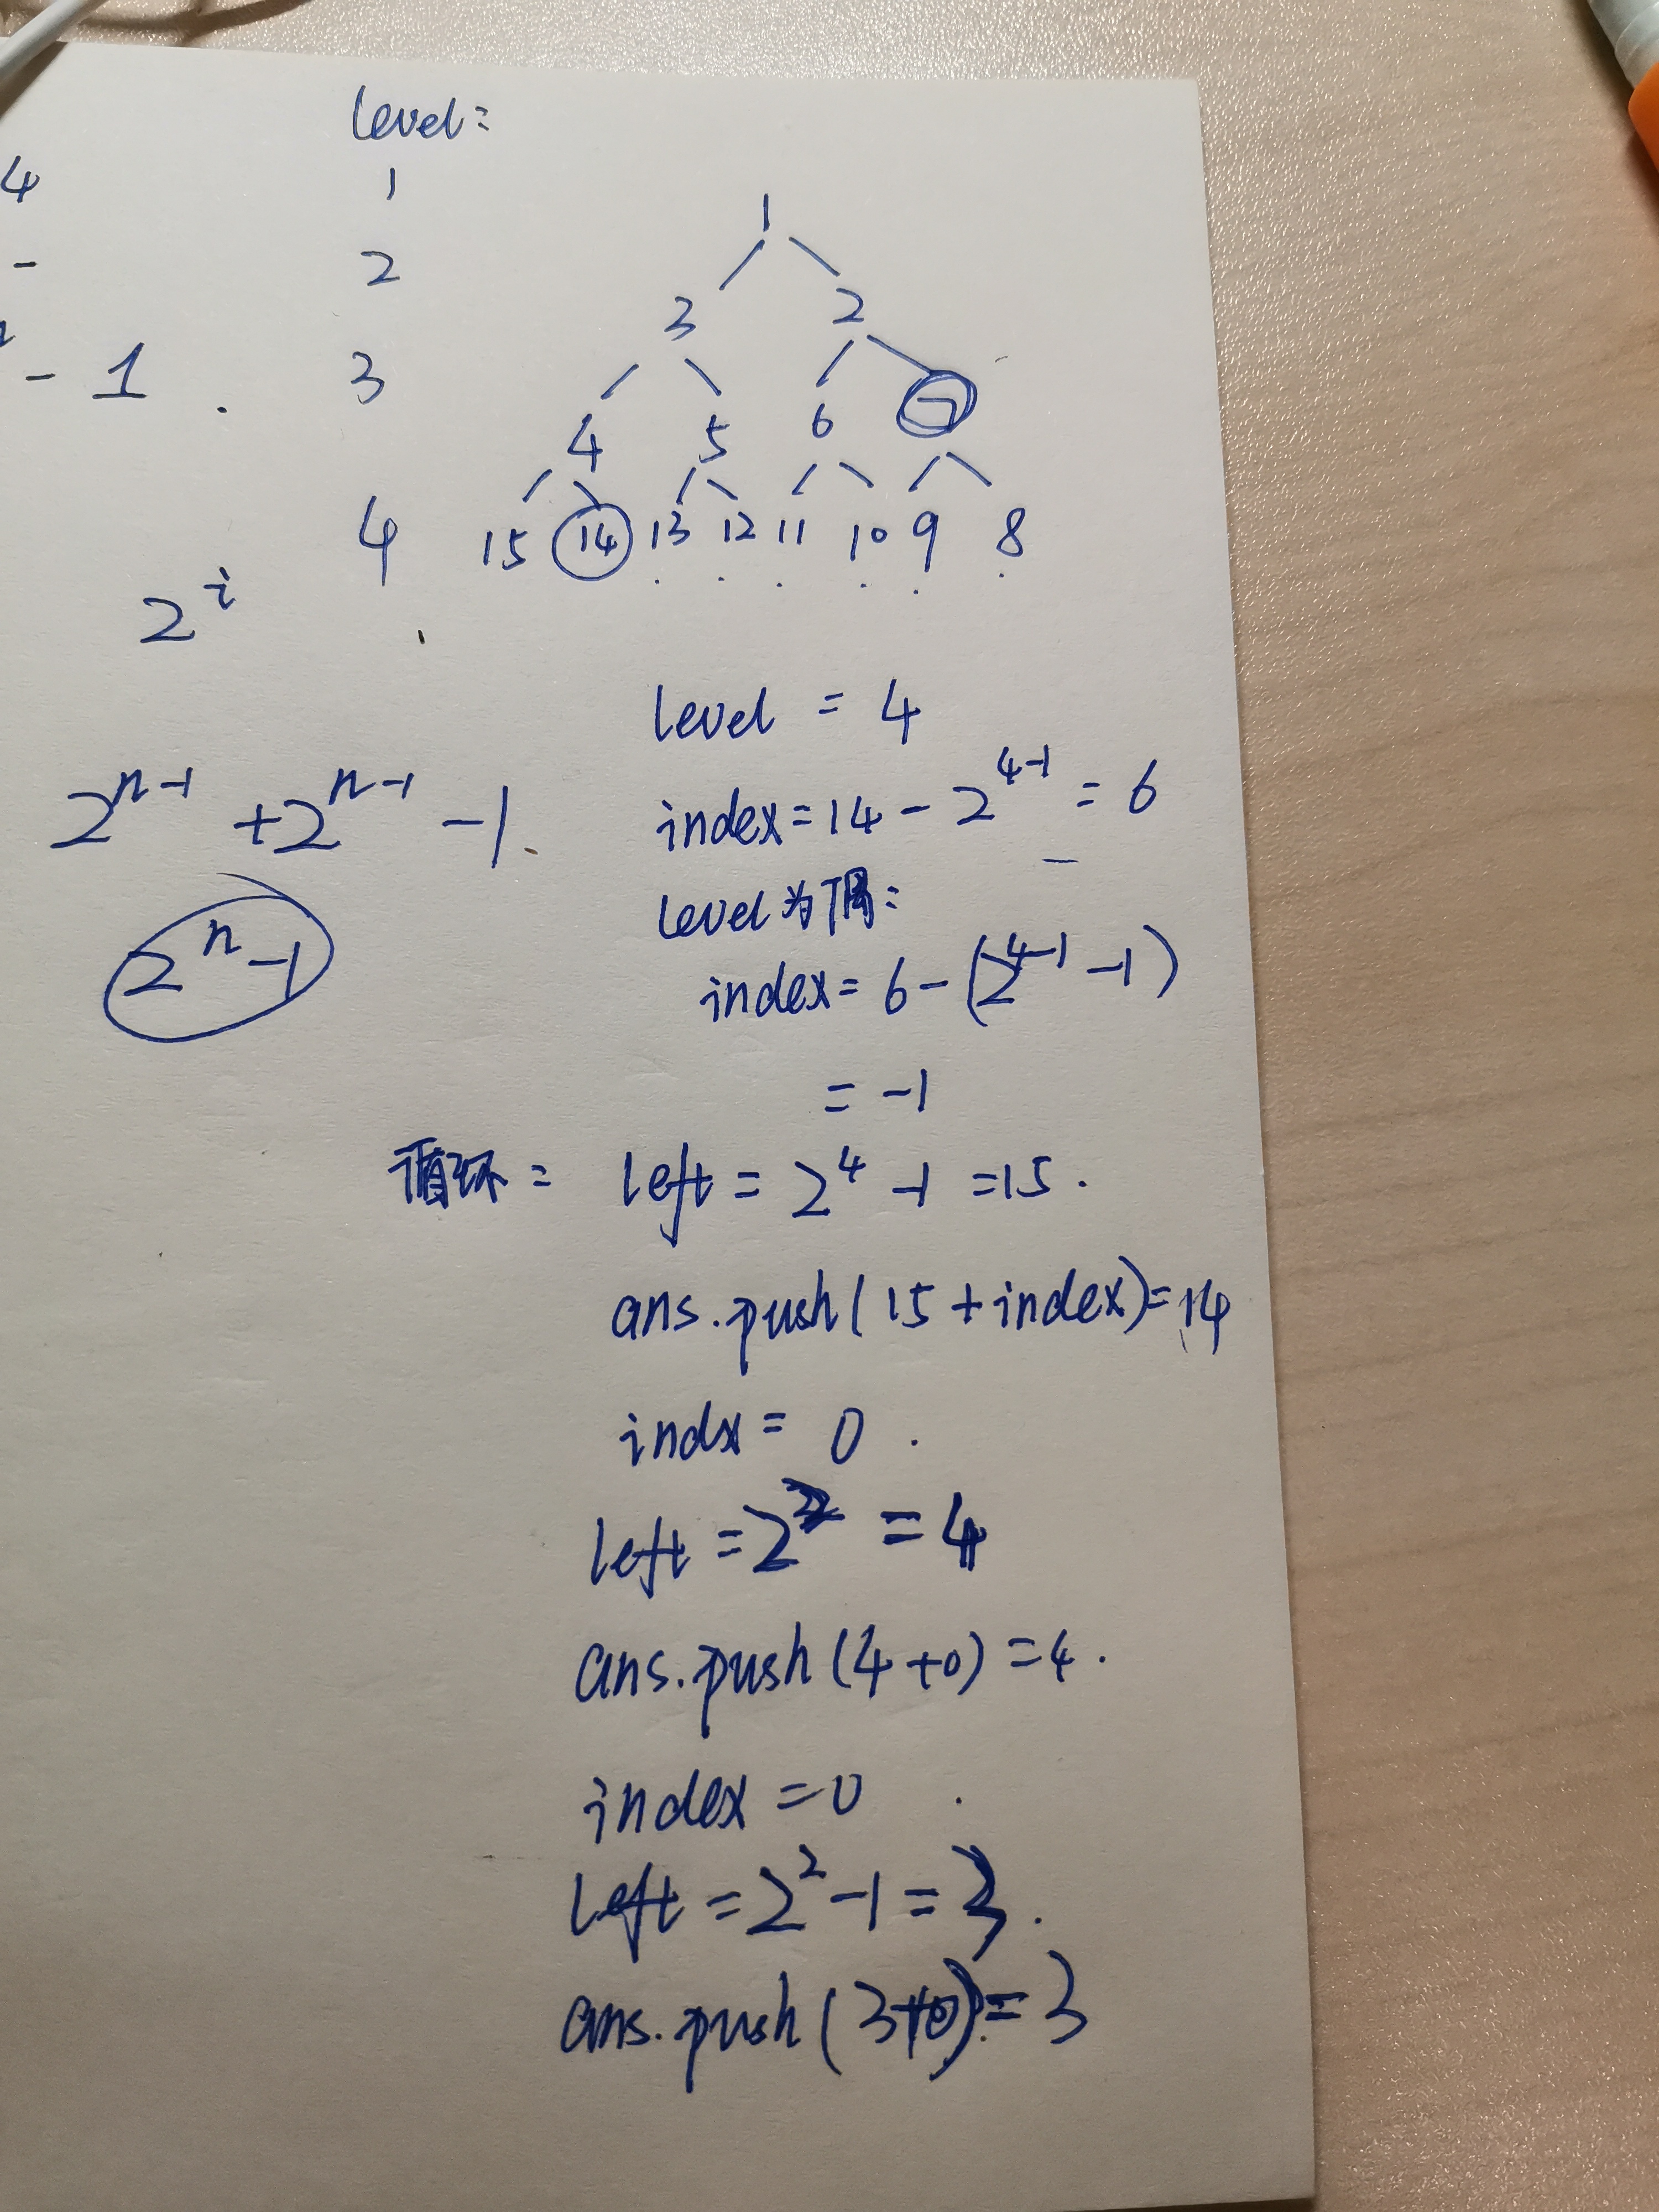 level:
4 1
- 2
- 1 . 3
4
1
3 2
4 5 6 7
15 14 13 12 11 10 9 8
2^i
level = 4
2^{n-1} + 2^{n-1} - 1.
index = 14 - 2^{4-1} = 6
2^n - 1
level为偶:
index = 6 - (2^{4-1} - 1)
= -1
循环: left = 2^4 - 1 = 15.
ans.push(15 + index) = 14
indx = 0.
left = 2^2 = 4
ans.push(4 + 0) = 4.
index = 0
left = 2^2 - 1 = 3.
ans.push(3+0) = 3